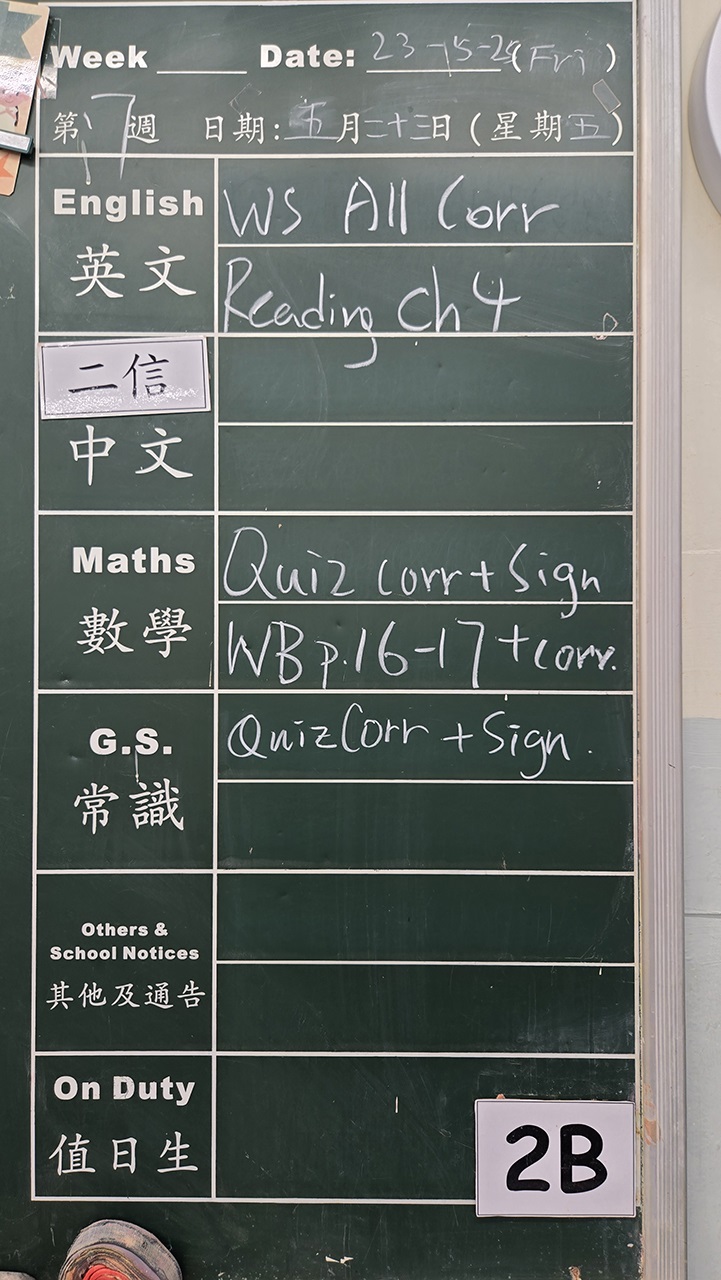 Week ____ Date: 23-5-24 (Fri)
第17週 日期:五月二十三日(星期五)
English WS All Corr
英文 Reading Ch 4
二信
中文
Maths Quiz corr + Sign
數學 WB p.16-17 + corr.
G.S. Quiz Corr + Sign.
常識
Others &
School Notices
其他及通告
On Duty
值日生
2B